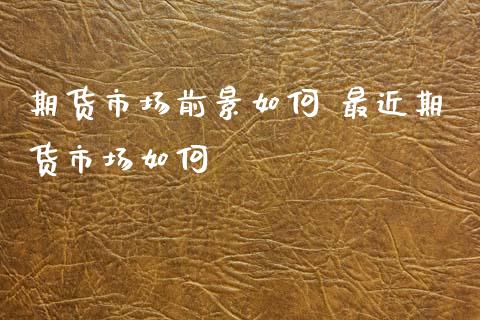 期货市场前景如何 最近期
货市场如何